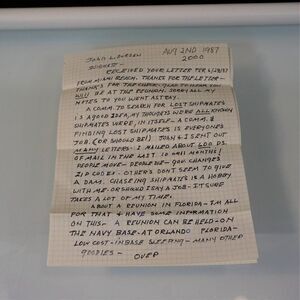 AUG 2ND 1987
2000
JOHN L.
SHIPMATE -
RECEIVED YOUR LETTER
FROM MIAMI BEACH. THANKS FOR THE LETTER -
THANKS FOR THE CHECK - GLAD TO HEAR YOU
WILL BE AT THE REUNION. SORRY ALL MY
NOTES TO YOU WENT ASTRAY.
A COMM. TO SEARCH FOR LOST SHIPMATES
IS A GOOD IDEA, MY THOUGHTS WERE ALL KNOWN
SHIPMATES WERE, IN ITSELF - A COMM. &
FINDING LOST SHIPMATES IS EVERYONES
JOB. (OR SHOULD BE!) JOHN & I SENT OUT
MANY LETTERS. I MAILED ABOUT 600
OF MAIL IN THE LAST 10 MONTHS!
PEOPLE MOVE - PEOPLE DIE - GOD CHANGES
ZIP CODES - OTHERS DON'T SEEM TO GIVE
A DAMN. CHASING SHIPMATES IS A HOBBY
WITH ME. OR SHOULD I SAY A JOB - IT SURE
TAKES A LOT OF MY TIME.
ABOUT A REUNION IN FLORIDA - I'M ALL
FOR THAT & HAVE SOME INFORMATION
ON THIS - A REUNION CAN BE HELD - ON
THE NAVY BASE - AT ORLANDO FLORIDA -
LOW COST - IN BASE SLEEPING - MANY OTHER
GOODIES -
OVER